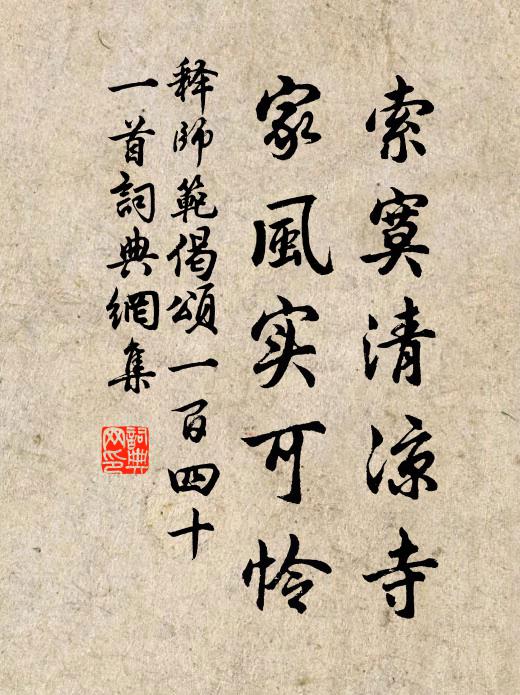 索寞清凉寺
家風实可怜
释師範偈頌一百四十
一首詞典網集
詞典网印